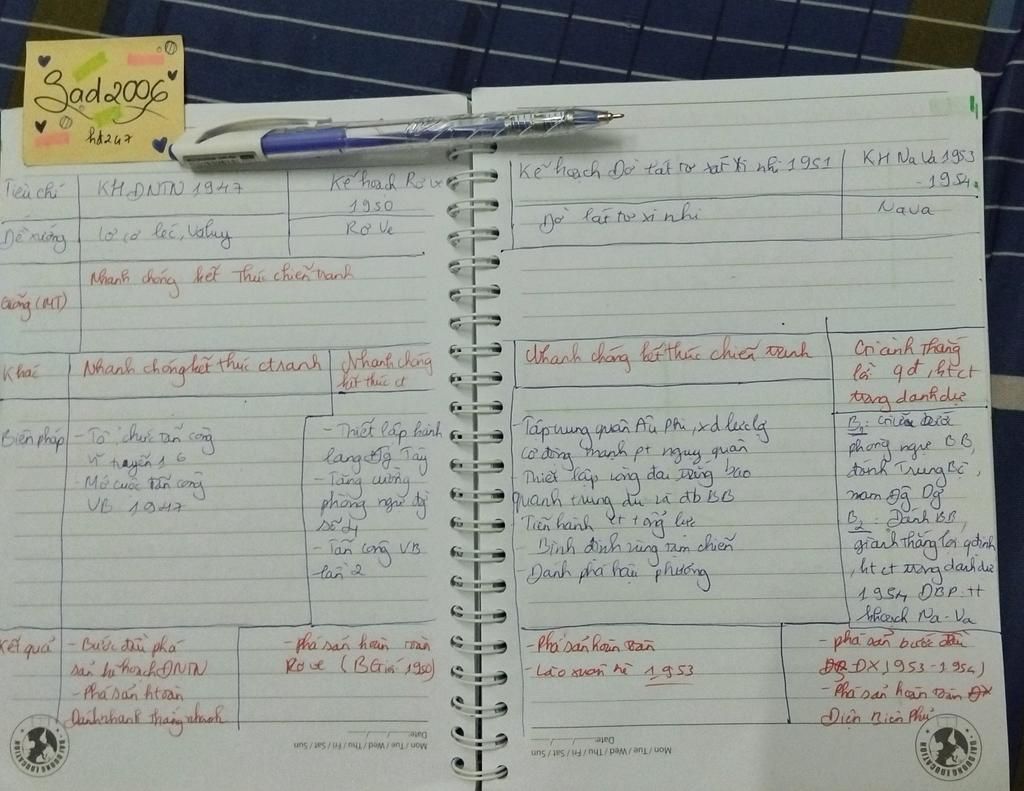 Sad2006
hđ247
Tiêu chí
KH ĐNTN 1947
Kế hoạch Rơ ve
1950
Kế hoạch Đờ lát tơ tát xi nhi 1951
KH Na Va 1953
- 1954
Đề xướng
Va luy
Rơ Ve
Đờ lát tơ xi nhi
Nava
Giống (MT)
Nhanh chóng kết thúc chiến tranh
Khác
Nhanh chóng kết thúc ctranh
Nhanh chóng
kết thúc ct
Nhanh chóng kết thúc chiến tranh
Giành thắng
lợi qđ, kt ct
trong danh dự
Biện pháp
- Tổ chức tấn công
vĩ tuyến 16
- Mở cuộc tấn công
VB 1947
- Thiết lập hành
lang Đg Tây
- Tăng cường
phòng ngự đg
số 4
- Tấn công VB
lần 2
- Tập trung quân Âu Phi, xd lực lg
cơ động mạnh pt ngụy quân
- Thiết lập vòng đai trắng bao
quanh trung du và đb BB
- Tiến hành ct tổng lực
- Bình định vùng tạm chiến
- Đánh phá hậu phương
B1:
phòng ngự BB,
đánh Trung Bộ,
nam Đg Dg
B2: Đánh BB,
giành thắng lợi qđịnh
, kt ct trong danh dự
1954 ĐBP tt
khoạch Na-Va
Kết quả
- Bước đầu phá
sản khoạch ĐNTN
- Phá sản htoàn
Đánh nhanh thắng nhanh
- Phá sản hoàn toàn
Rơ ve (BGiới 1950)
- Phá sản hoàn toàn
- Lào xuân hè 1953
- phá sản bước đầu
ĐX (1953-1954)
- Phá sản hoàn toàn
Điện Biên Phủ
Date:
Mon / Tue / Wed / Thu / Fri / Sat / Sun
Date:
Mon / Tue / Wed / Thu / Fri / Sat / Sun
DAI DUONG EDUCATION
DAI DUONG EDUCATION